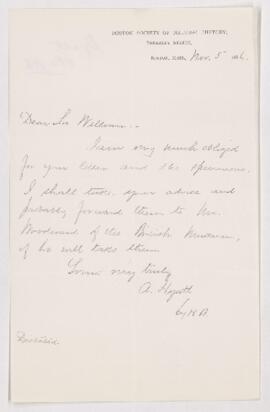 BOSTON SOCIETY OF NATURAL HISTORY,
BERKELEY STREET,
BOSTON, MASS., Nov. 5
Dear Sir William:-
I am very much obliged
for your letter and the specimens.
I shall take your advice and
probably forward them to Mr.
Woodward of the British Museum,
if he will take them
Yours very truly
A. Hyatt
Dictated.